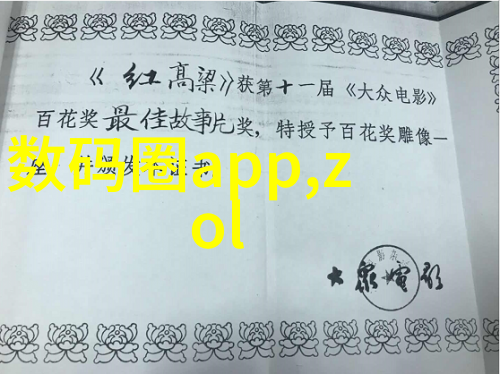 《红高粱》获第十一届《大众电影》
百花奖最佳故事片奖，特授予百花奖雕像一
座，并颁发本证书
数码圈app,z
ol
大众电影